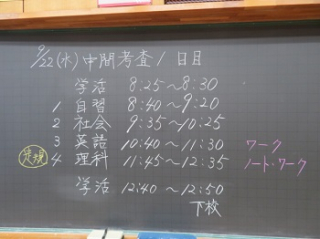 9/22(水)中間考査1日目
学活 8:25～8:30
1 自習 8:40～9:20
2 社会 9:35～10:25
3 英語 10:40～11:30 ワーク
4 理科 11:45～12:35 ノート・ワーク
学活 12:40～12:50
下校